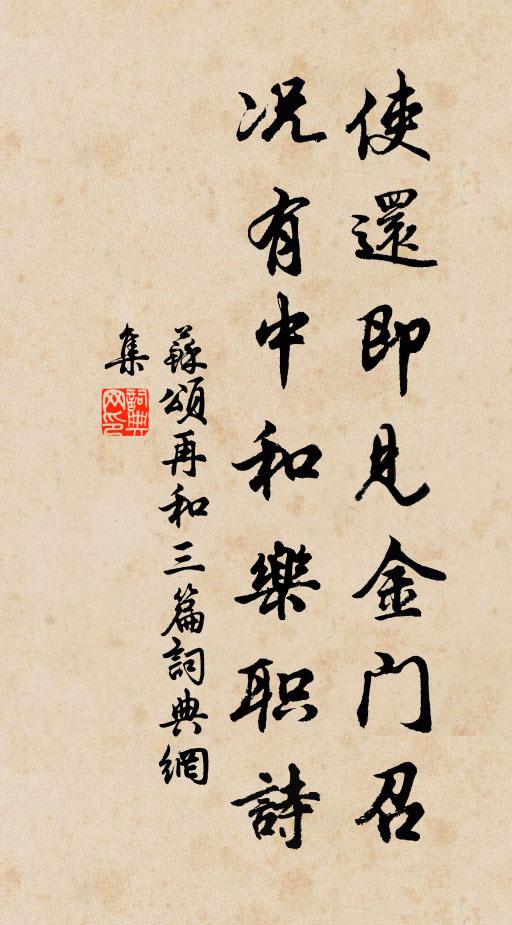 使還即見金门召
况有中和樂职詩
蘇頌再和三篇詞典網
集
詞典网印